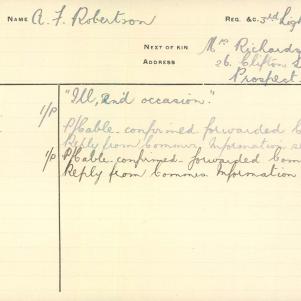 NAME A. F. Robertson REG. &C. 3rd Lig
NEXT OF KIN Mrs Richards
ADDRESS 26. Clifton S
Prospect.
"Ill, 2nd occasion."
1/P P/Cable confirmed forwarded C
Reply from Commrs, Information se
1/P P/Cable confirmed forwarded Com
Reply from Commrs Information